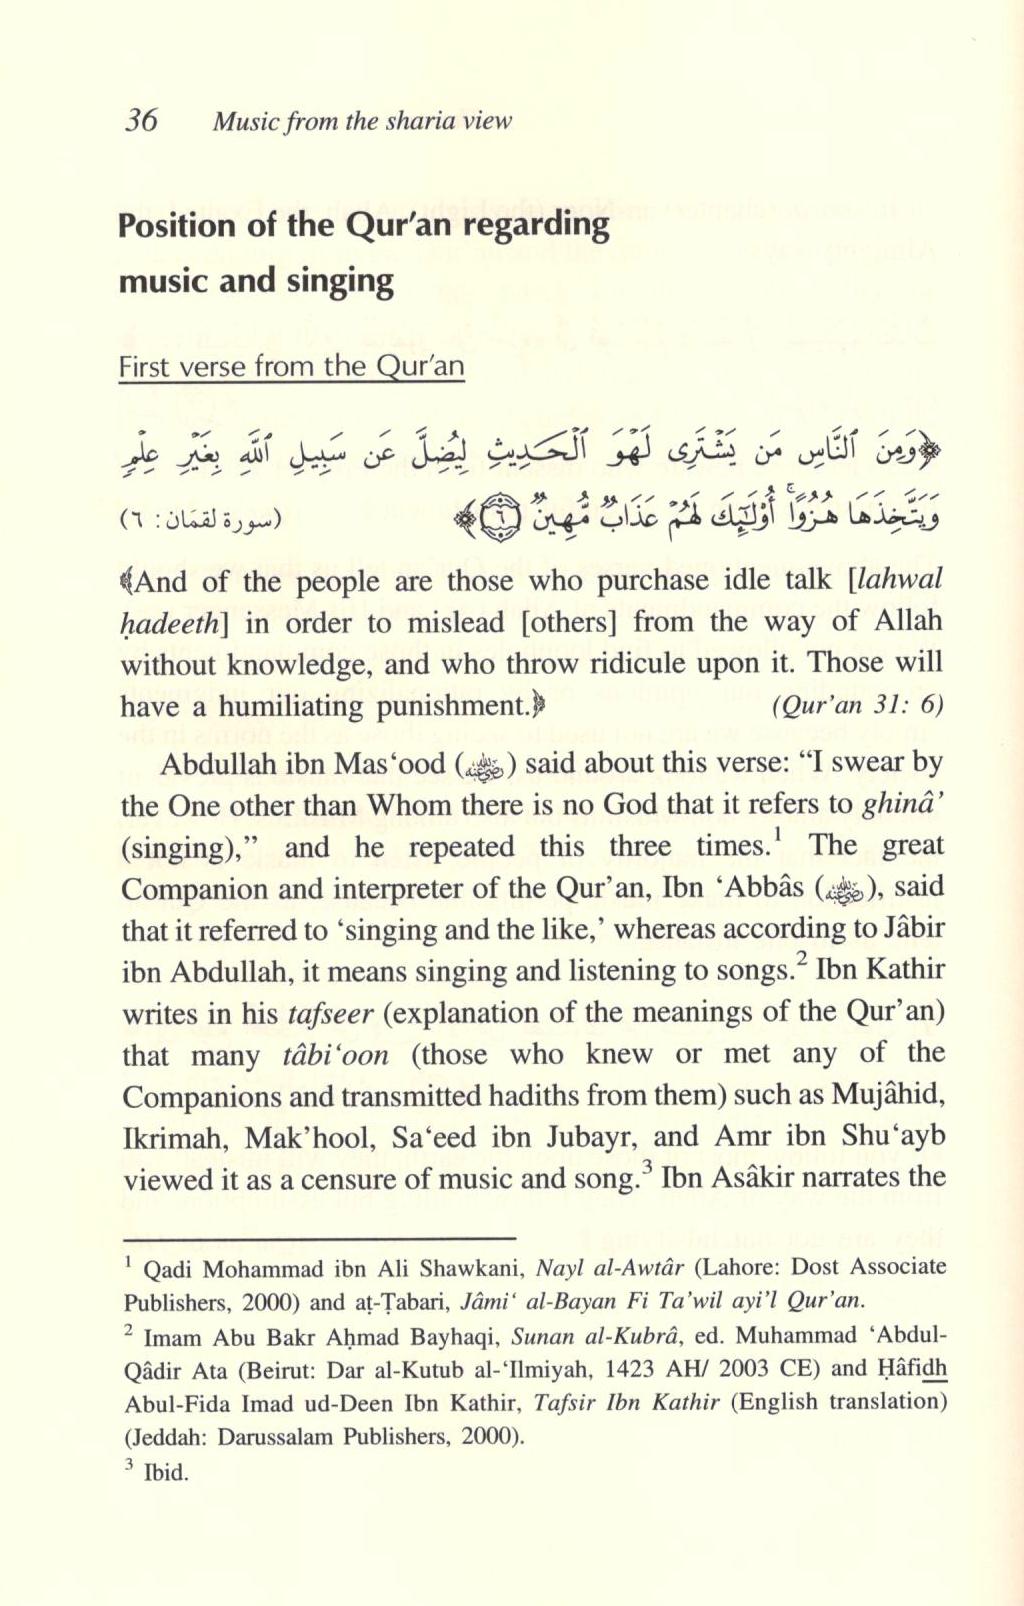 36 Music from the sharia view
Position of the Qur'an regarding
music and singing
First verse from the Qur'an
﴿وَمِنَ ٱلنَّاسِ مَن يَشْتَرِى لَهْوَ ٱلْحَدِيثِ لِيُضِلَّ عَن سَبِيلِ ٱللَّهِ بِغَيْرِ عِلْمٍ
وَيَتَّخِذَهَا هُزُوًا ۚ أُو۟لَـٰٓئِكَ لَهُمْ عَذَابٌ مُّهِينٌ ٦﴾ (سورة لقمَان: ٦)
﴾And of the people are those who purchase idle talk [lahwal
ḥadeeth] in order to mislead [others] from the way of Allah
without knowledge, and who throw ridicule upon it. Those will
have a humiliating punishment.﴿ (Qur'an 31: 6)
Abdullah ibn Mas‘ood (رضي الله عنه) said about this verse: “I swear by
the One other than Whom there is no God that it refers to ghinâ’
(singing),” and he repeated this three times.¹ The great
Companion and interpreter of the Qur’an, Ibn ‘Abbâs (رضي الله عنه), said
that it referred to ‘singing and the like,’ whereas according to Jâbir
ibn Abdullah, it means singing and listening to songs.² Ibn Kathir
writes in his tafseer (explanation of the meanings of the Qur’an)
that many tâbi‘oon (those who knew or met any of the
Companions and transmitted hadiths from them) such as Mujâhid,
Ikrimah, Mak’hool, Sa‘eed ibn Jubayr, and Amr ibn Shu‘ayb
viewed it as a censure of music and song.³ Ibn Asâkir narrates the
¹ Qadi Mohammad ibn Ali Shawkani, Nayl al-Awtâr (Lahore: Dost Associate
Publishers, 2000) and aṭ-Ṭabari, Jâmi‘ al-Bayan Fi Ta’wil ayi’l Qur’an.
² Imam Abu Bakr Aḥmad Bayhaqi, Sunan al-Kubrâ, ed. Muhammad ‘Abdul-
Qâdir Ata (Beirut: Dar al-Kutub al-‘Ilmiyah, 1423 AH/ 2003 CE) and Ḥâfidh
Abul-Fida Imad ud-Deen Ibn Kathir, Tafsir Ibn Kathir (English translation)
(Jeddah: Darussalam Publishers, 2000).
³ Ibid.